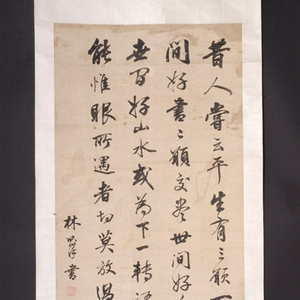 昔人嘗云平生有三願
間好書二願交盡世間好人
世間好山水或為下一轉語
能惟眼所遇者切莫放過
林 書